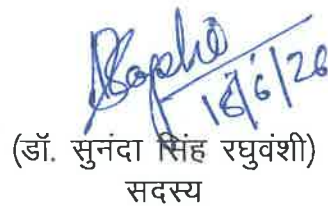 16/6/26
(डॉ. सुनंदा सिंह रघुवंशी)
सदस्य